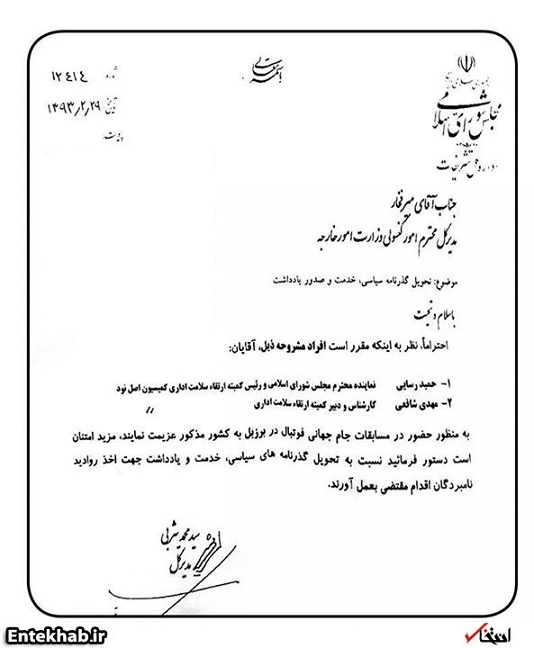 بسمه تعالی
جمهوری اسلامی ایران
مجلس شورای اسلامی
اداره کل تشریفات
شماره ۱۲۴۱۴
تاریخ ۱۳۹۳/۲/۲۹
پیوست:
جناب آقای میرفخار
مدیرکل محترم امور کنسولی وزارت امور خارجه
موضوع: تحویل گذرنامه سیاسی، خدمت و صدور یادداشت
باسلام و تحیت
احتراماً، نظر به اینکه مقرر است افراد مشروحه ذیل، آقایان:
۱- حمید رسایی نماینده محترم مجلس شورای اسلامی و رئیس کمیته ارتقاء سلامت اداری کمیسیون اصل نود
۲- مهدی شافعی کارشناس و دبیر کمیته ارتقاء سلامت اداری //
به منظور حضور در مسابقات جام جهانی فوتبال در برزیل به کشور مذکور عزیمت نمایند، مزید امتنان
است دستور فرمائید نسبت به تحویل گذرنامه های سیاسی، خدمت و یادداشت جهت اخذ روادید
نامبردگان اقدام مقتضی بعمل آورند.
سید محمد یثربی
مدیرکل
Entekhab.ir
انتخاب